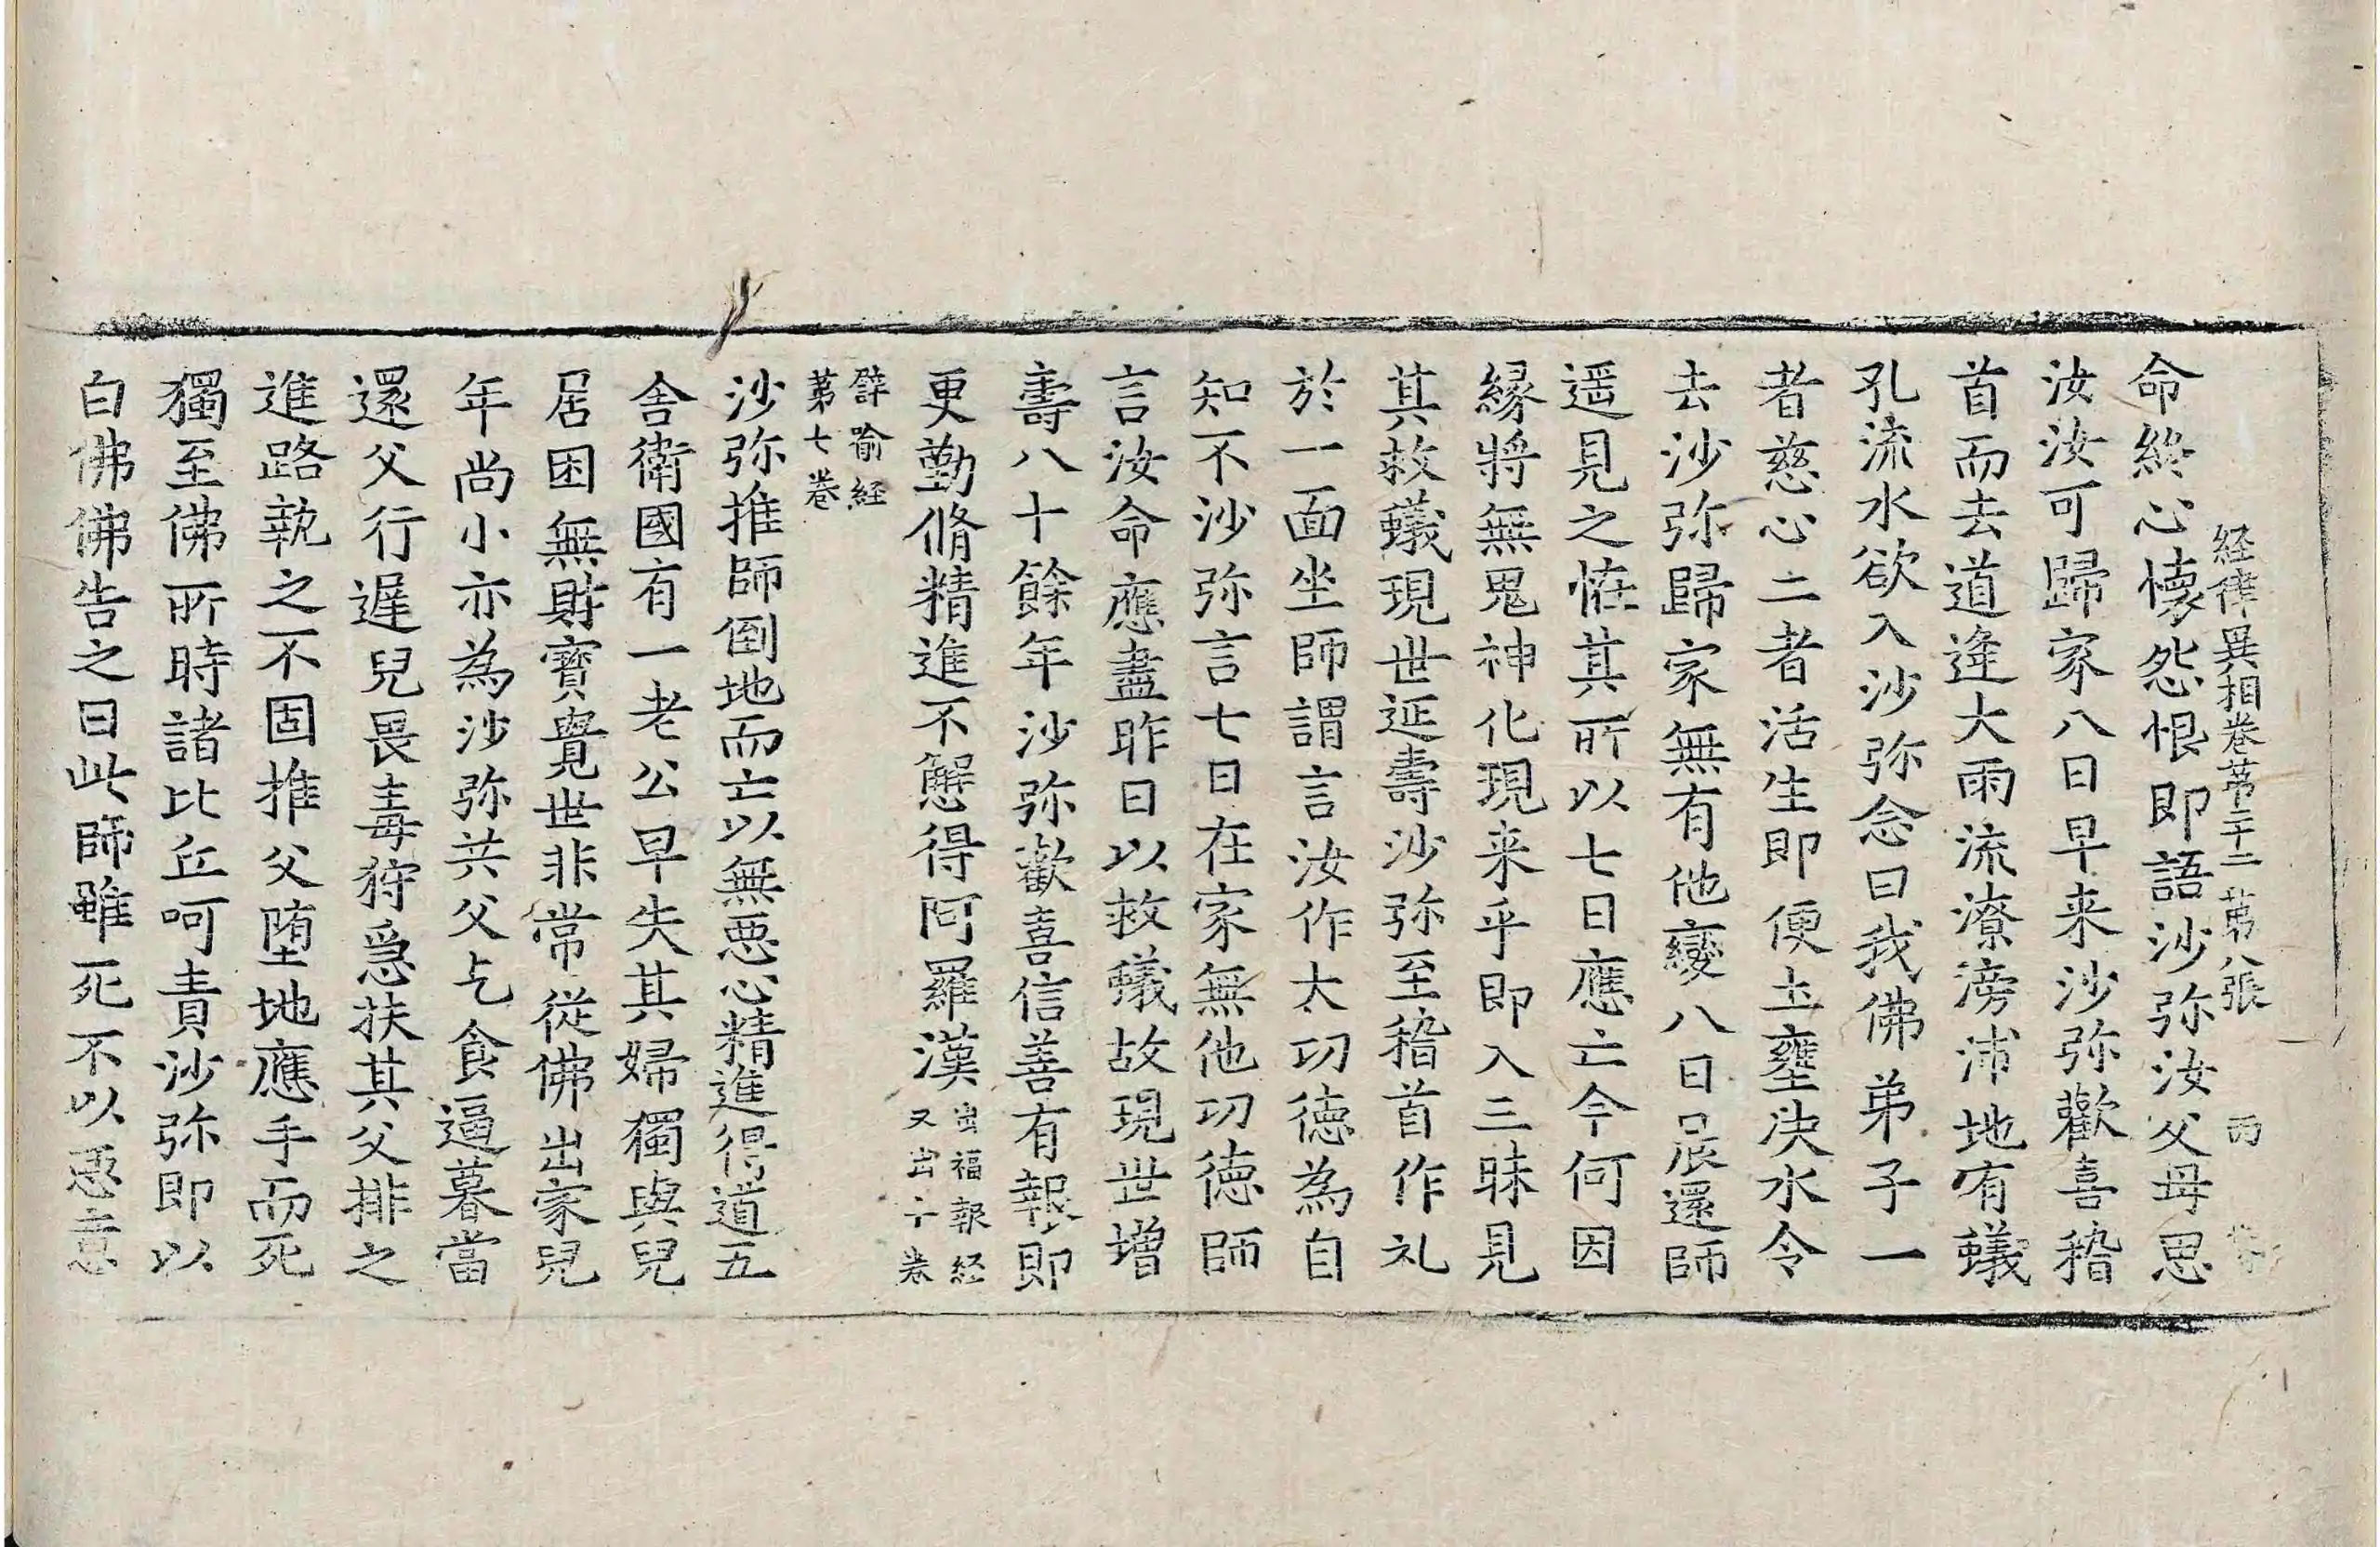 経律異相卷苐二十二 苐八張 雨
命終心懷怨恨即語沙弥汝父母思
汝汝可歸家八日早来沙弥歡喜稽
首而去道逢大雨流潦滂沛地有蟻
孔流水欲入沙弥念曰我佛弟子一
者慈心二者活生即便土壅決水令
去沙弥歸家無有他變八日晨還師
遥見之恠其所以七日應亡今何因
縁將無鬼神化現来乎即入三昧見
其救蟻現世延壽沙弥至稽首作礼
於一面坐師謂言汝作大功德為自
知不沙弥言七日在家無他功德師
言汝命應盡昨日以救蟻故現世增
壽八十餘年沙弥歡喜信善有報即
更勤脩精進不懈得阿羅漢 出福報経
又出十卷
譬喻経
苐七卷
沙弥推師倒地而亡以無惡心精進得道五
舍衛國有一老公早失其婦獨與兒
居困無財寶覺世非常從佛出家兒
年尚小亦為沙弥共父乞食逼暮當
還父行遲兒畏毒狩急扶其父排之
進路執之不固推父墮地應手而死
獨至佛所時諸比丘呵責沙弥即以
白佛佛告之曰此師雖死不以惡意